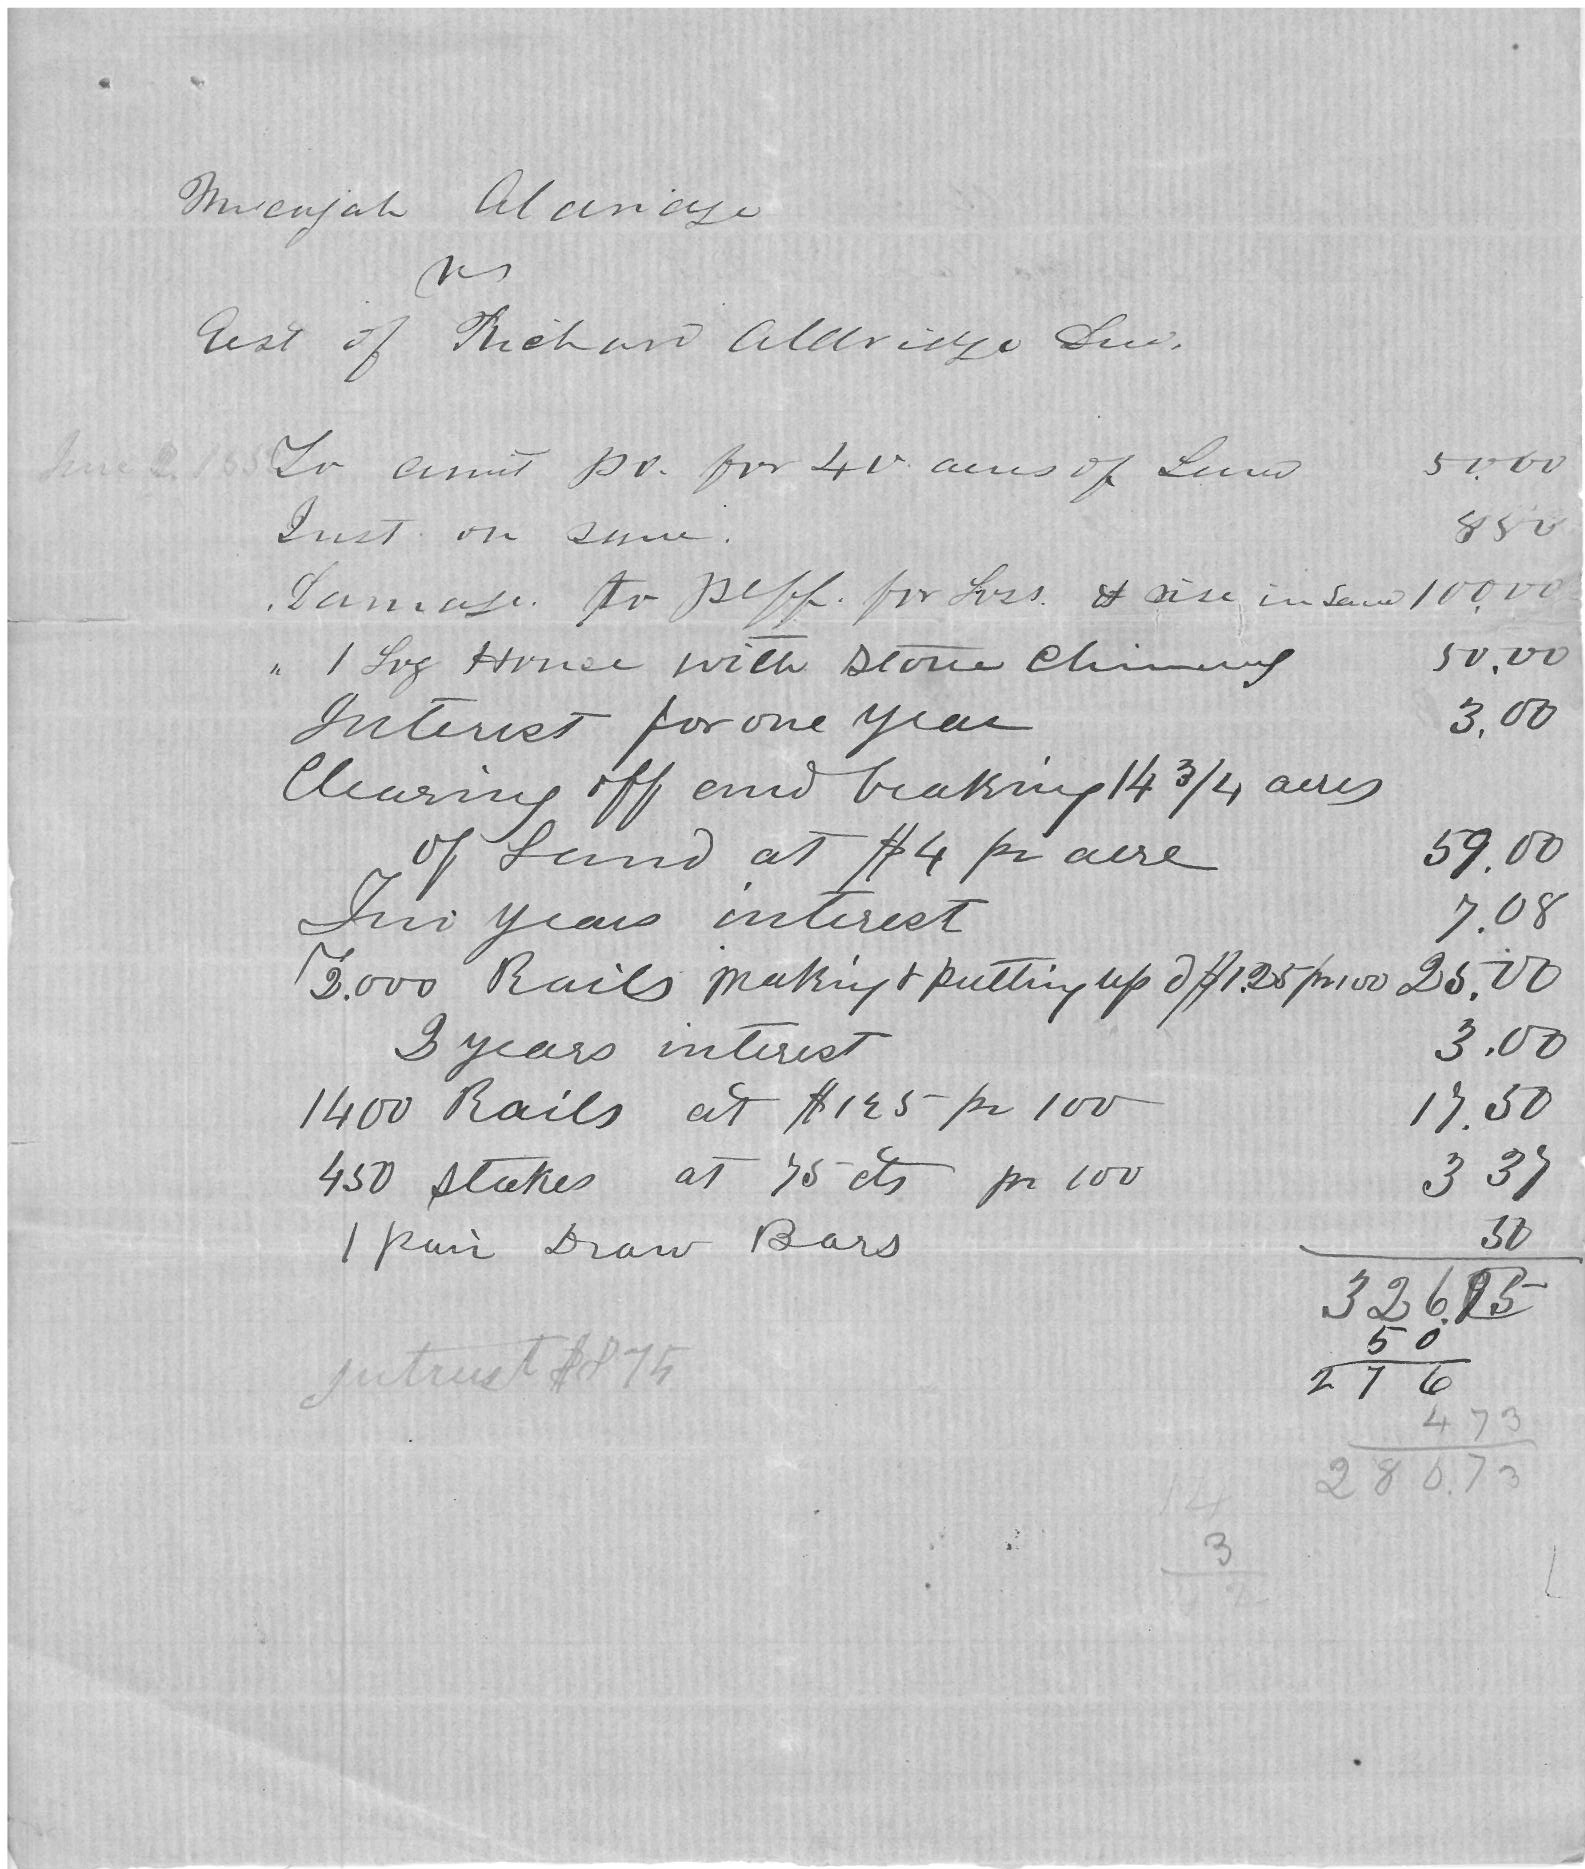 Micajah Aldridge
vs
Est of Richard Aldridge Dec.
June 2. 185 To amt pd. for 40 acres of Land 50.00
Inst on same. 850
Damage. to Plff. for Loss. & rise in Land 100.00
" 1 Log House with stone Chimney 50.00
Interest for one year 3.00
Clearing off and breaking 14 3/4 acres
of Land at $4 pr acre 59.00
Two years interest 7.08
2.000 Rails making & putting up @ $1.25 pr 100 25.00
2 years interest 3.00
1400 Rails at $125 pr 100 17.50
450 stakes at 75 cts pr 100 3 37
1 pair Draw Bars 50
326.95
50
276
intrust $875
473
280.73
14
3